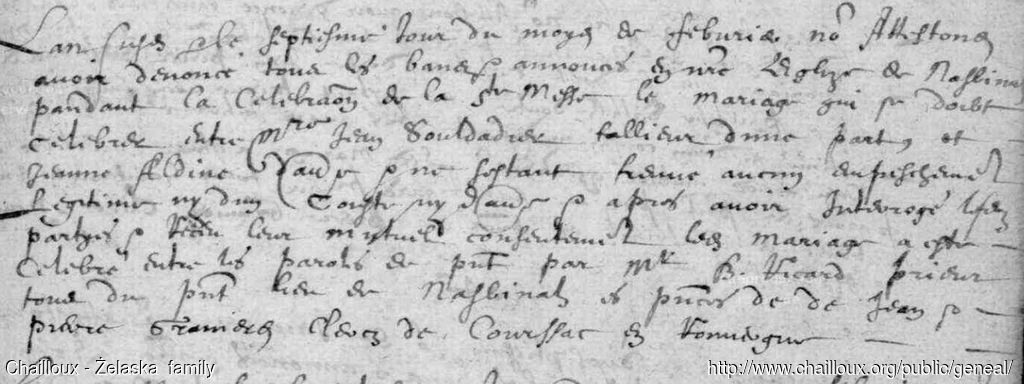 Lan susd & le septiesme Jour du moys de febvrier no9 Attestons
avoir denoncé tous les bancs & annonces en nre Leglize de Nasbinalz
pandant la Celebraon de la Ste Messe le mariage qui se doibt
Celebrer entre Mre Jean Souldadier tallieur d'une part, et
Jeanne Aldine d'autre & ne sestant treuvé aucun enpeschement
Legitime ny d'un Costé ny d'autre & apres avoir Interrogé lesd
partyes & Receu leur mutuel consentement led mariage a esté
Celebré entre les parols de pnt par Mr B Ricard prieur
tous du pnt lieu de Nasbinalz es pnces de de Jean &
pierre Graniers Clercz de Courssac en Rouuergue
Chailloux - Żelaska family
http://www.chailloux.org/public/geneal/